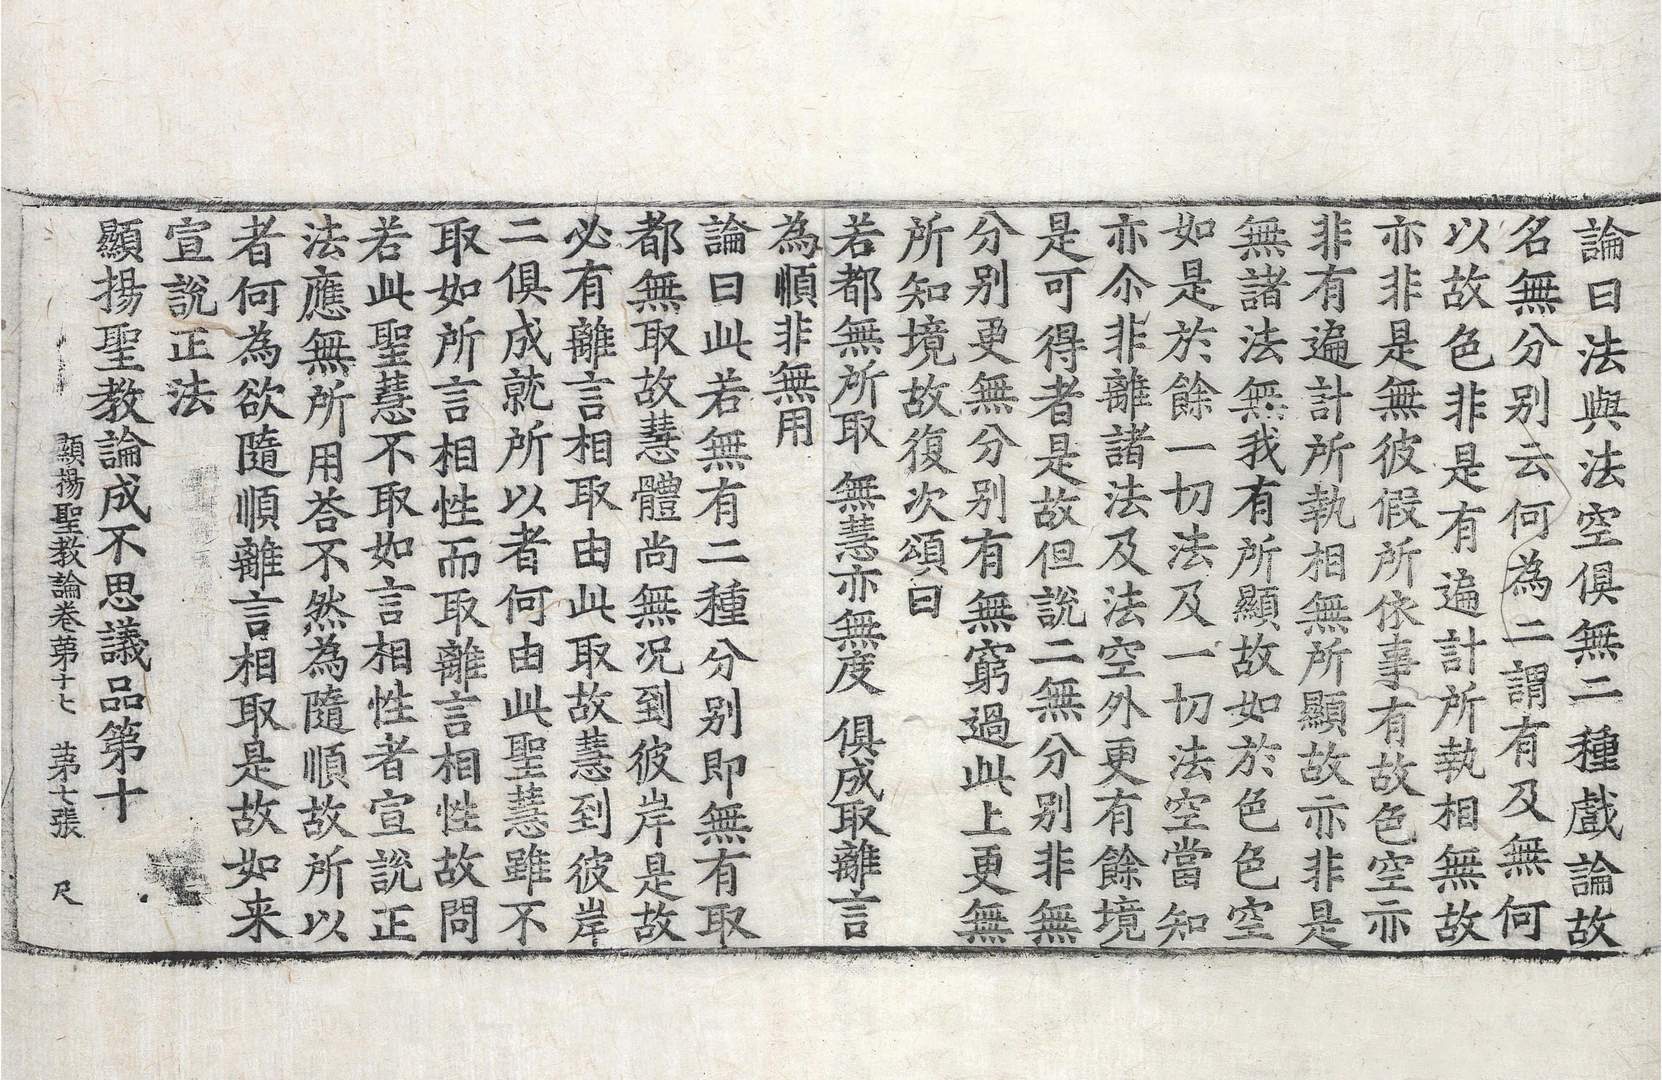 論曰法與法空俱無二種戲論故
名無分別云何為二謂有及無何
以故色非是有遍計所執相無故
亦非是無彼假所依事有故色空亦
非有遍計所執相無所顯故亦非是
無諸法無我有所顯故如於色色空
如是於餘一切法及一切法空當知
亦尒非離諸法及法空外更有餘境
是可得者是故但說二無分別非無
分別更無分別有無窮過此上更無
所知境故復次頌曰
若都無所取 無慧亦無度 俱成取離言
為順非無用
論曰此若無有二種分別即無有取
都無取故慧體尚無况到彼岸是故
必有離言相取由此取故慧到彼岸
二俱成就所以者何由此聖慧雖不
取如所言相性而取離言相性故問
若此聖慧不取如言相性者宣說正
法應無所用荅不然為隨順故所以
者何為欲隨順離言相取是故如来
宣說正法
顯揚聖教論成不思議品第十
顯揚聖教論卷苐十七 苐七張 尺